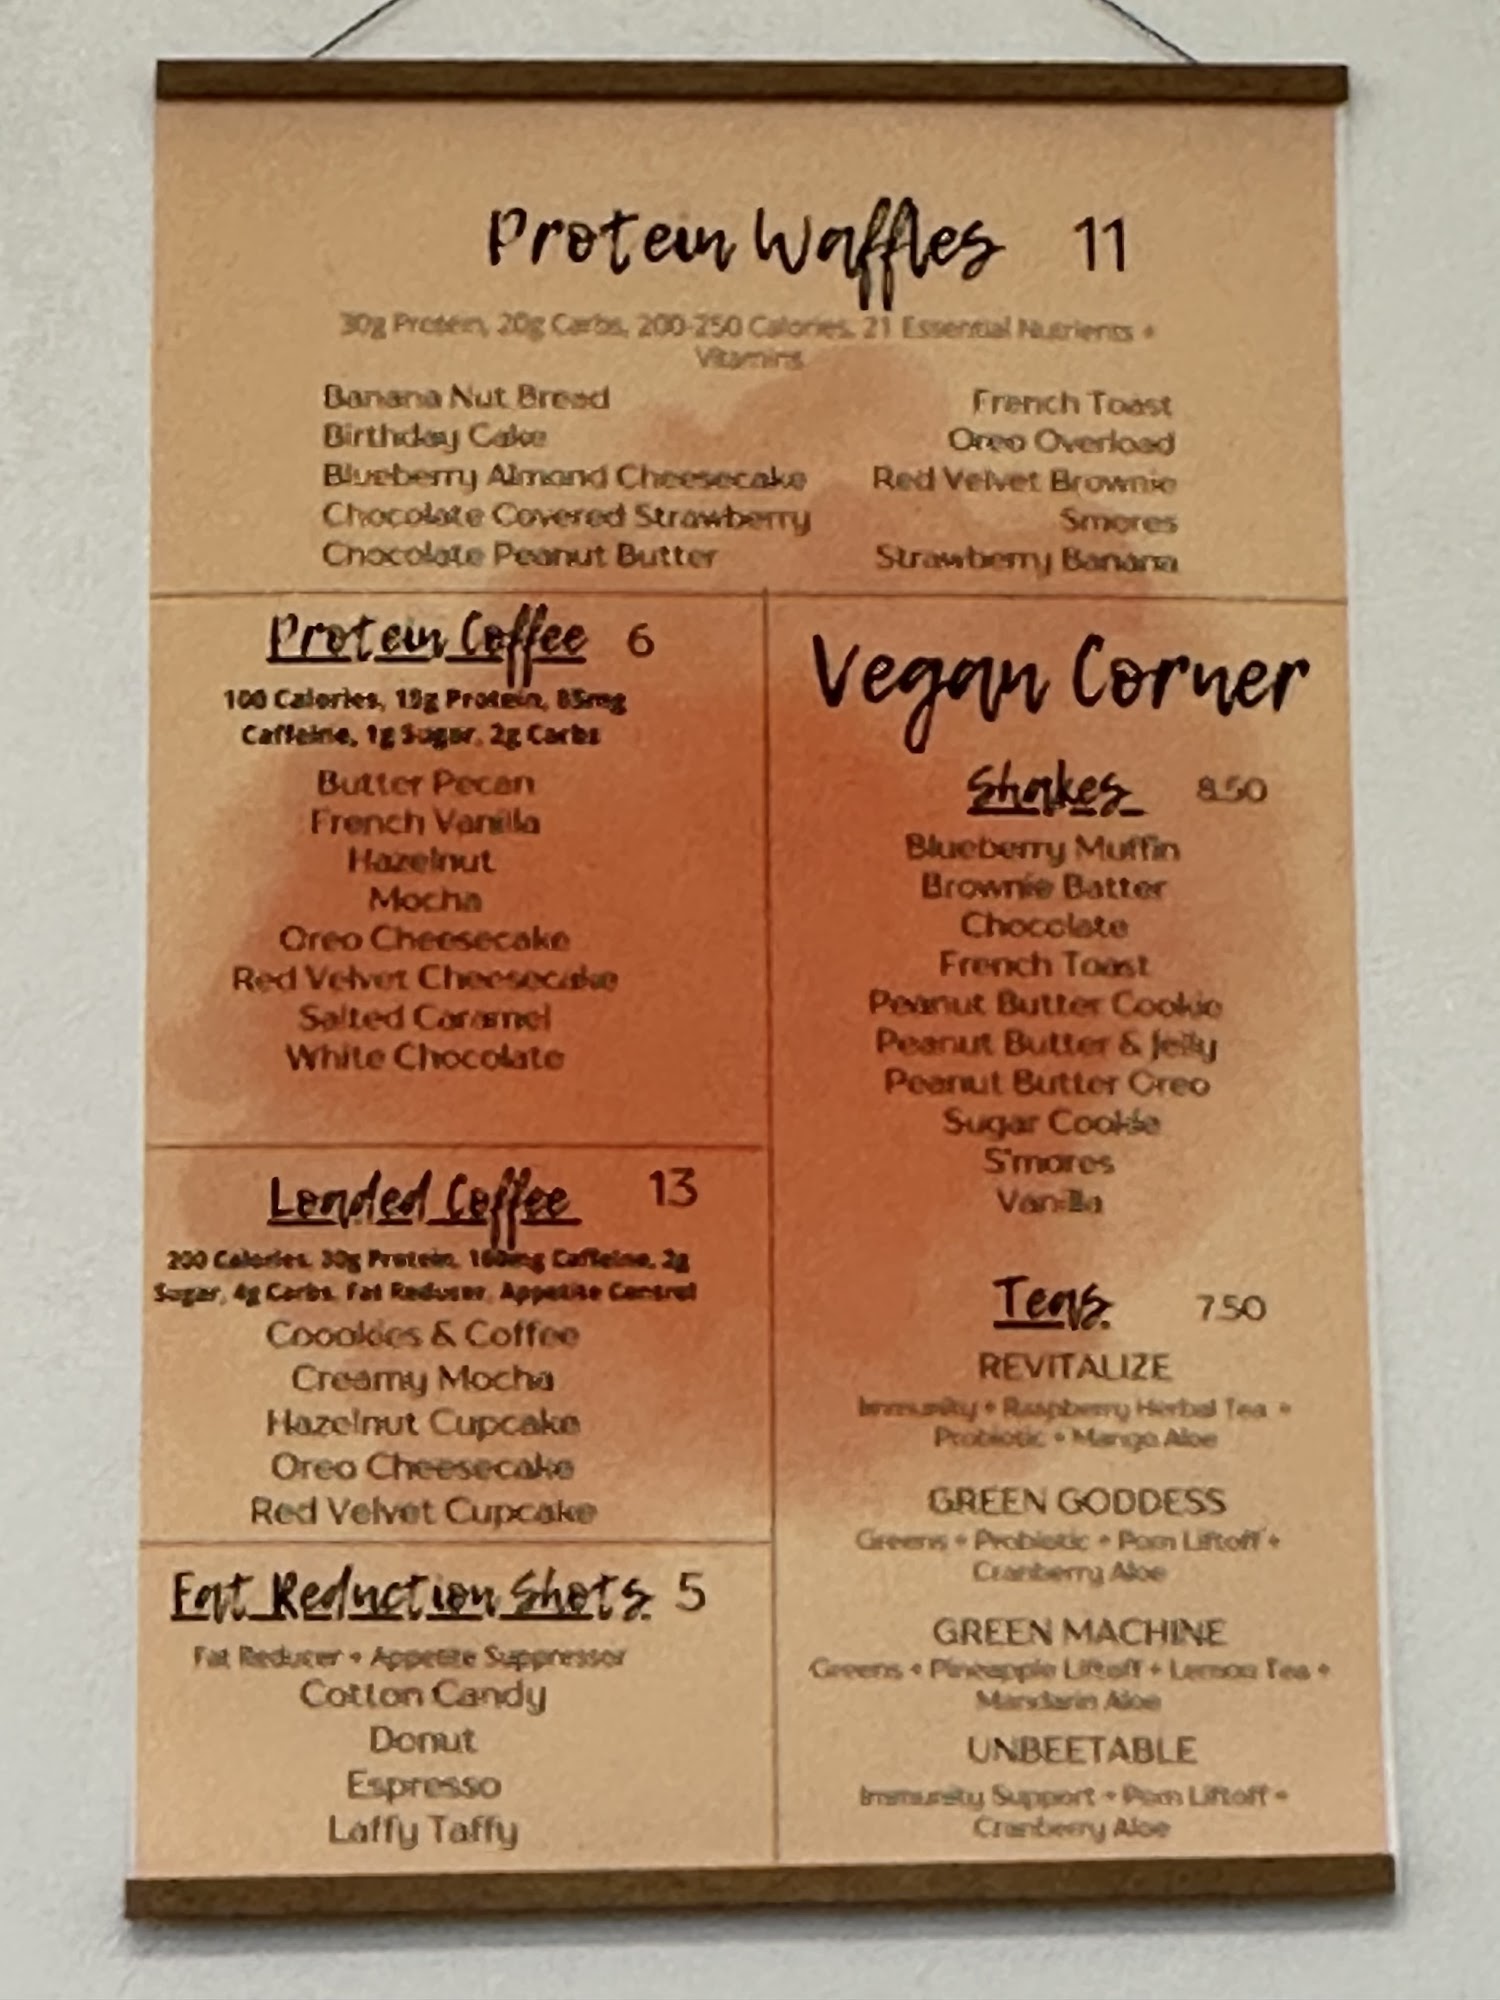 Protein Waffles 11
30g Protein, 20g Carbs, 200-250 Calories, 21 Essential Nutrients +
Vitamins
Banana Nut Bread
Birthday Cake
Blueberry Almond Cheesecake
Chocolate Covered Strawberry
Chocolate Peanut Butter
French Toast
Oreo Overload
Red Velvet Brownie
Smores
Strawberry Banana
Protein Coffee 6
100 Calories, 15g Protein, 85mg
Caffeine, 1g Sugar, 2g Carbs
Butter Pecan
French Vanilla
Hazelnut
Mocha
Oreo Cheesecake
Red Velvet Cheesecake
Salted Caramel
White Chocolate
Loaded Coffee 13
200 Calories, 30g Protein, 160mg Caffeine, 2g
Sugar, 4g Carbs, Fat Reducer, Appetite Control
Coookies & Coffee
Creamy Mocha
Hazelnut Cupcake
Oreo Cheesecake
Red Velvet Cupcake
Fat Reduction Shots 5
Fat Reducer + Appetite Suppressor
Cotton Candy
Donut
Espresso
Laffy Taffy
Vegan Corner
Shakes 8.50
Blueberry Muffin
Brownie Batter
Chocolate
French Toast
Peanut Butter Cookie
Peanut Butter & Jelly
Peanut Butter Oreo
Sugar Cookie
S'mores
Vanilla
Teas 7.50
REVITALIZE
Immunity + Raspberry Herbal Tea +
Probiotic + Mango Aloe
GREEN GODDESS
Greens + Probiotic + Pom Liftoff +
Cranberry Aloe
GREEN MACHINE
Greens + Pineapple Liftoff + Lemon Tea +
Mandarin Aloe
UNBEETABLE
Immunity Support + Pom Liftoff +
Cranberry Aloe